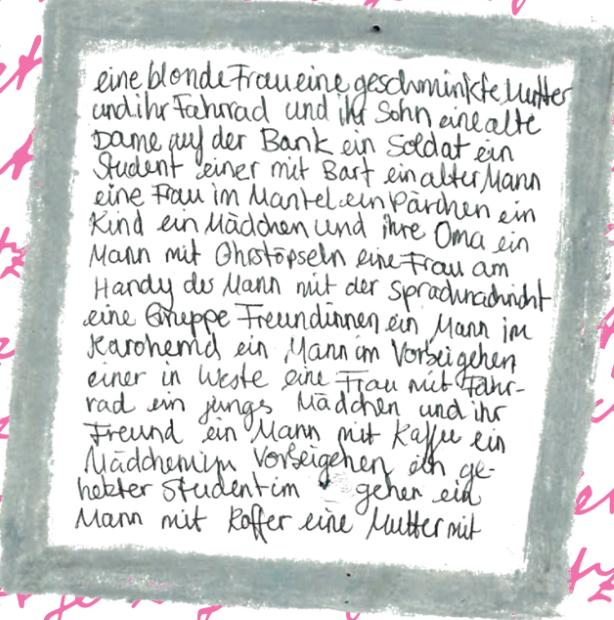 eine blonde Frau eine geschminkte Mutter
und ihr Fahrrad und ihr Sohn eine alte
Dame auf der Bank ein Soldat ein
Student einer mit Bart ein alter Mann
eine Frau im Mantel ein Pärchen ein
Kind ein Mädchen und ihre Oma ein
Mann mit Ohrstöpseln eine Frau am
Handy der Mann mit der Sprachnachricht
eine Gruppe Freundinnen ein Mann im
Karohemd ein Mann im Vorbeigehen
einer in Weste eine Frau mit Fahr-
rad ein junges Mädchen und ihr
Freund ein Mann mit Kaffee ein
Mädchen im Vorbeigehen ein ge-
hetzter Student im gehen ein
Mann mit Koffer eine Mutter mit